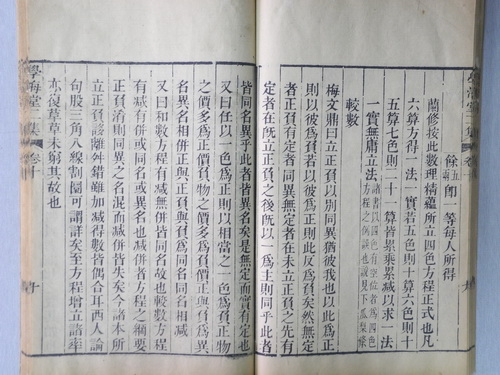 餘五兩卽一等每人所得
蘭修按此數理精蘊所立四色方程正式也凡
六算方得一法一實若五色則十算六色則十
五算七色則二十一算皆累乘累減以求一法
一實無庸立法諸書以四色有空位者爲四色方程之例誤也說見下瓜梨條
較數
梅文鼎曰立正負以別同異猶彼我也以此爲正
則以彼爲負若以彼爲正則此反爲負矣然無定
者定在旣立正負之後同異無定者在未立正負之先有
定者在旣立正負之後旣以一爲主則同乎此者
皆同名異乎此者皆異名矣是無定而實有定也
又曰任以一色爲正則以相當之一色爲負正物
之價多爲正價負物之價多爲負價正與負爲異
名異名相併正與正負與負爲同名同名相減
又曰和數方程有減無併皆同名故也較數方程
有減有併或同名或異名也減併者方程之綱要
正負淆則同異之名混而減併皆失矣今諸本所
立正負詼離舛錯雖加減得數皆偶合耳西人論
句股三角八線割圜可謂詳矣至方程增立諸率
亦復草草未窮其故也
學海堂二集
卷十